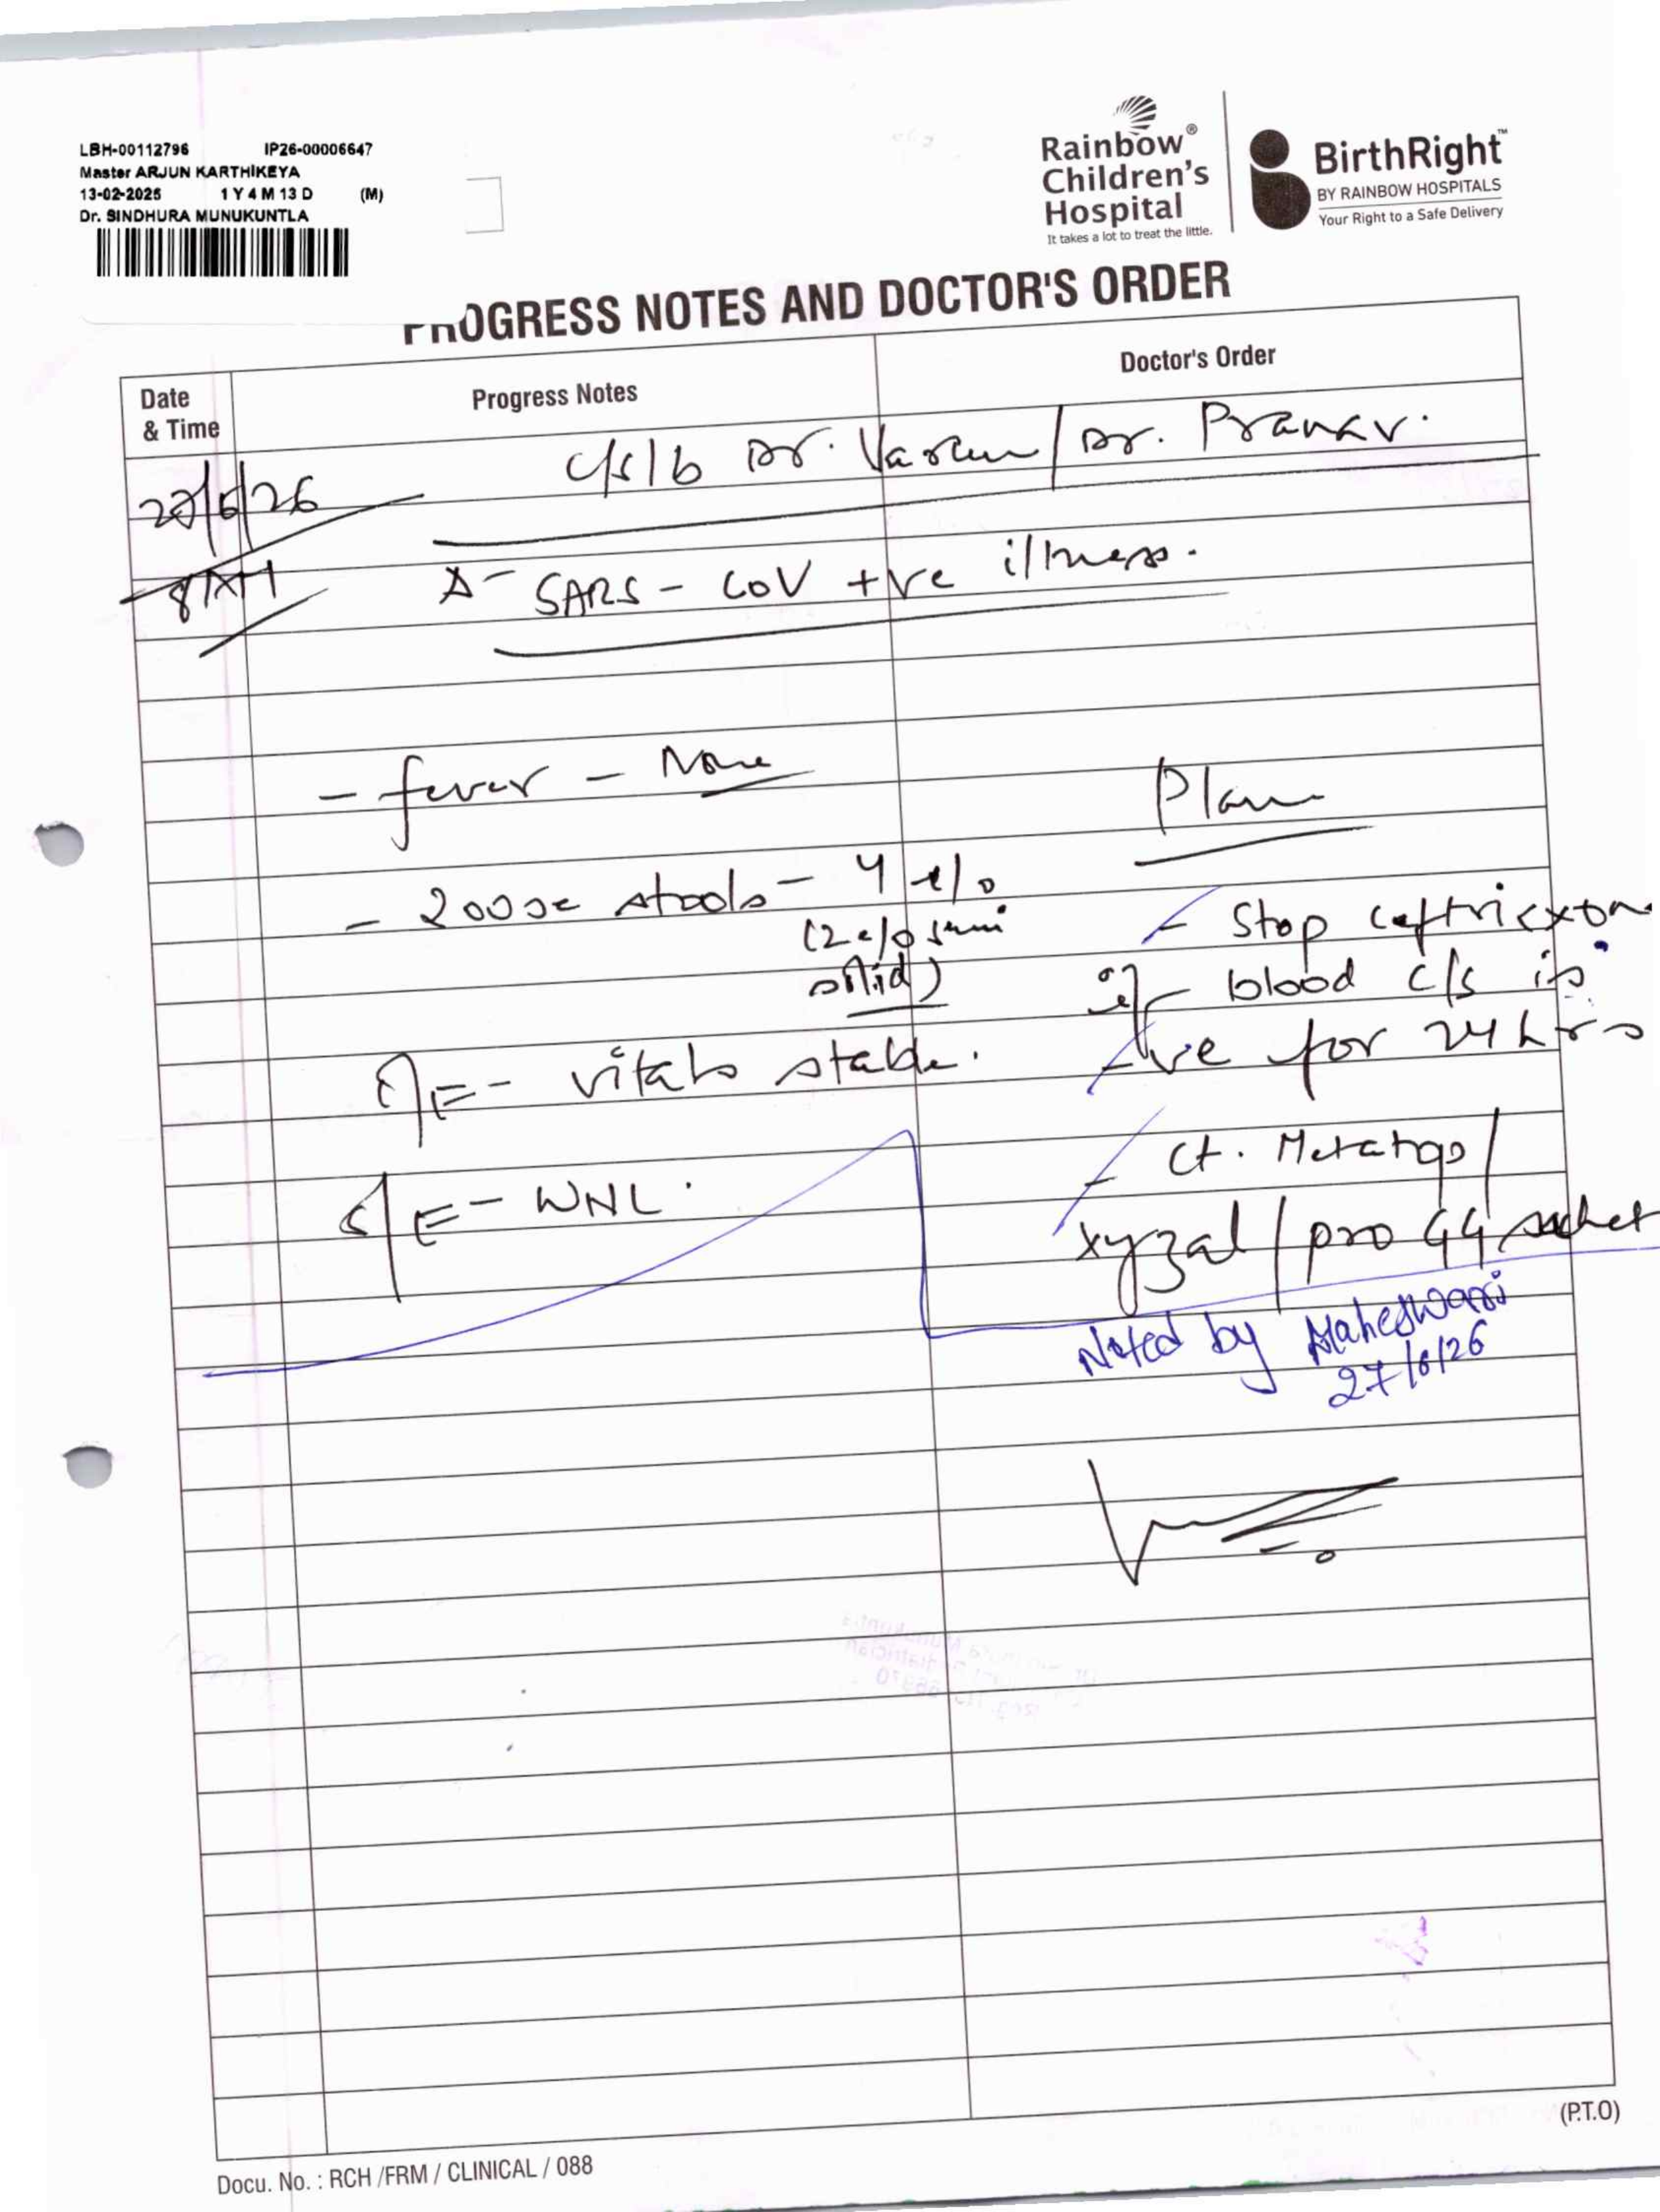 LBH-00112796 IP26-00006647
Master ARJUN KARTHIKEYA
13-02-2025 1 Y 4 M 13 D (M)
Dr. SINDHURA MUNUKUNTLA
Rainbow®
Children's
Hospital
It takes a lot to treat the little.
BirthRight™
BY RAINBOW HOSPITALS
Your Right to a Safe Delivery
PROGRESS NOTES AND DOCTOR'S ORDER
Date & Time
Progress Notes
Doctor's Order
27/6/26
c/s/b Dr. Varun / Dr. Pranav.
Δ- SARS - CoV +ve illness.
- fever - None
- loose stools - 4 e/o
(2 e/o semi
solid)
O/E - vitals stable.
S/E - WNL.
Plan
- Stop ceftriaxone
if blood c/s is
-ve for 24 hrs
- Ct. Metatop /
xyzal / pro GG sachet
Noted by Maheswari
27/6/26
(P.T.O)
Docu. No. : RCH /FRM / CLINICAL / 088